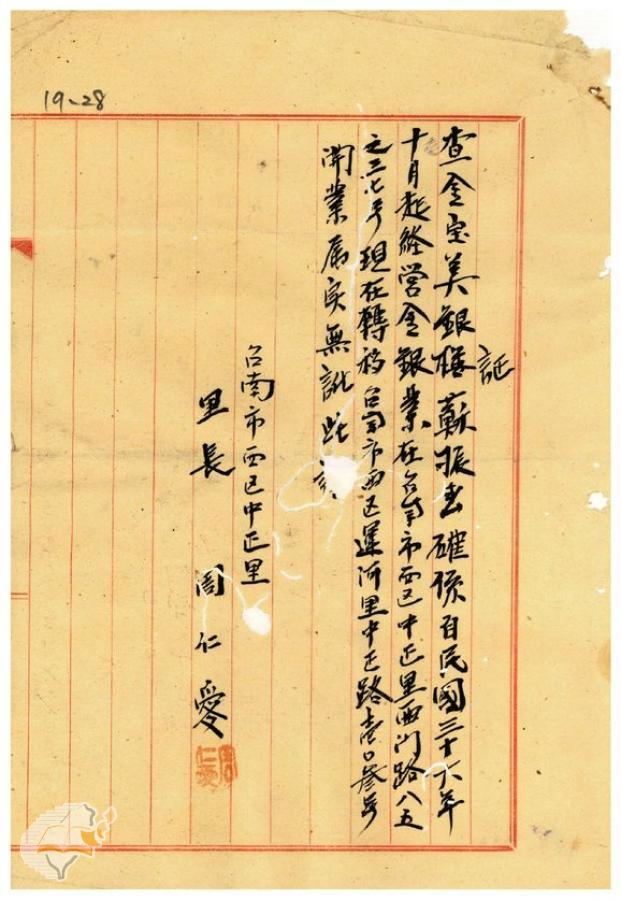 19-28
証
查金宝美銀樓蘇振 確係自民國三十六年
十月起経営金銀業在台南市西区中正里西门路八五
之三七号現在轉移台南市西区運河里中正路壹〇參号
開業属实無訛此証
台南市西区中正里
里長 周仁愛
周仁愛